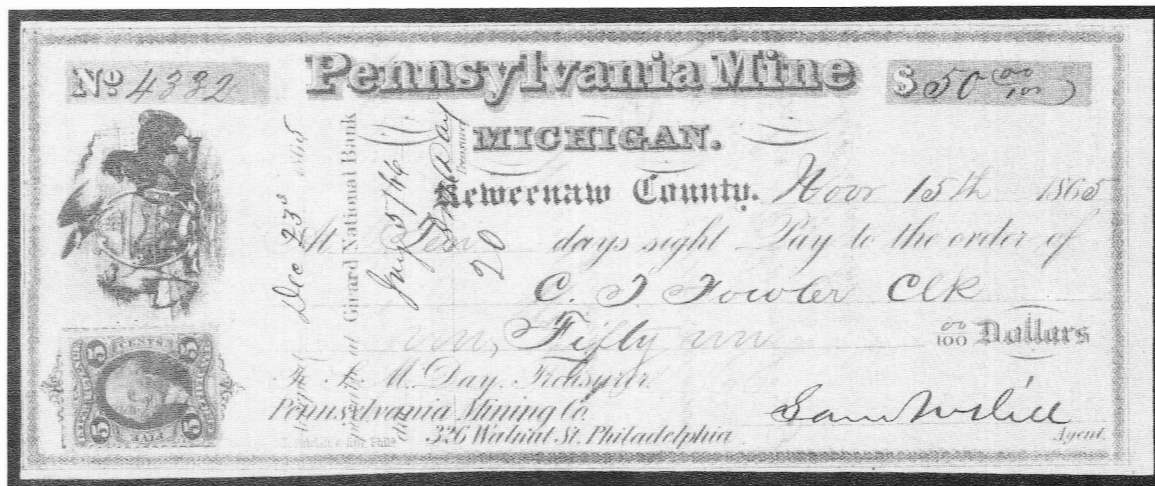 No 4332
Pennsylvania Mine
$ 50 00/100
MICHIGAN.
Keweenaw County. Novr 15th 1865
At Ten days sight Pay to the order of
C. T. Fowler Clk
Fifty 00/100 Dollars
To M. Day. Treasurer
Pennsylvania Mining Co
326 Walnut St. Philadelphia
Agent.
Dec 23d 1865
at Girard National Bank
Day
Treasurer
20
5 CENTS 5
5 FIVE 5